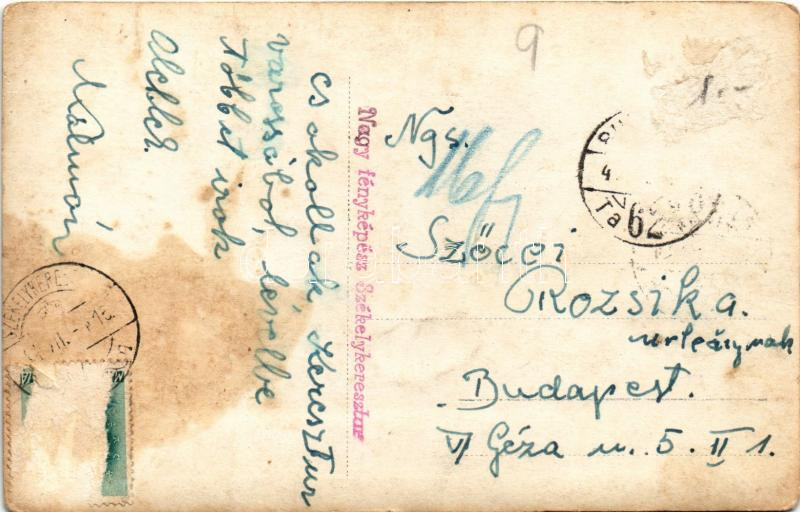 9
1.-
Csokollak Keresztur
városából, levélbe
Többet irok
Kálmán
Nagy fényképész Székelykeresztur
Ngs.
Szőcei
Rozsika.
urleánynak
Budapest.
VI Géza u. 5. II 1.
62